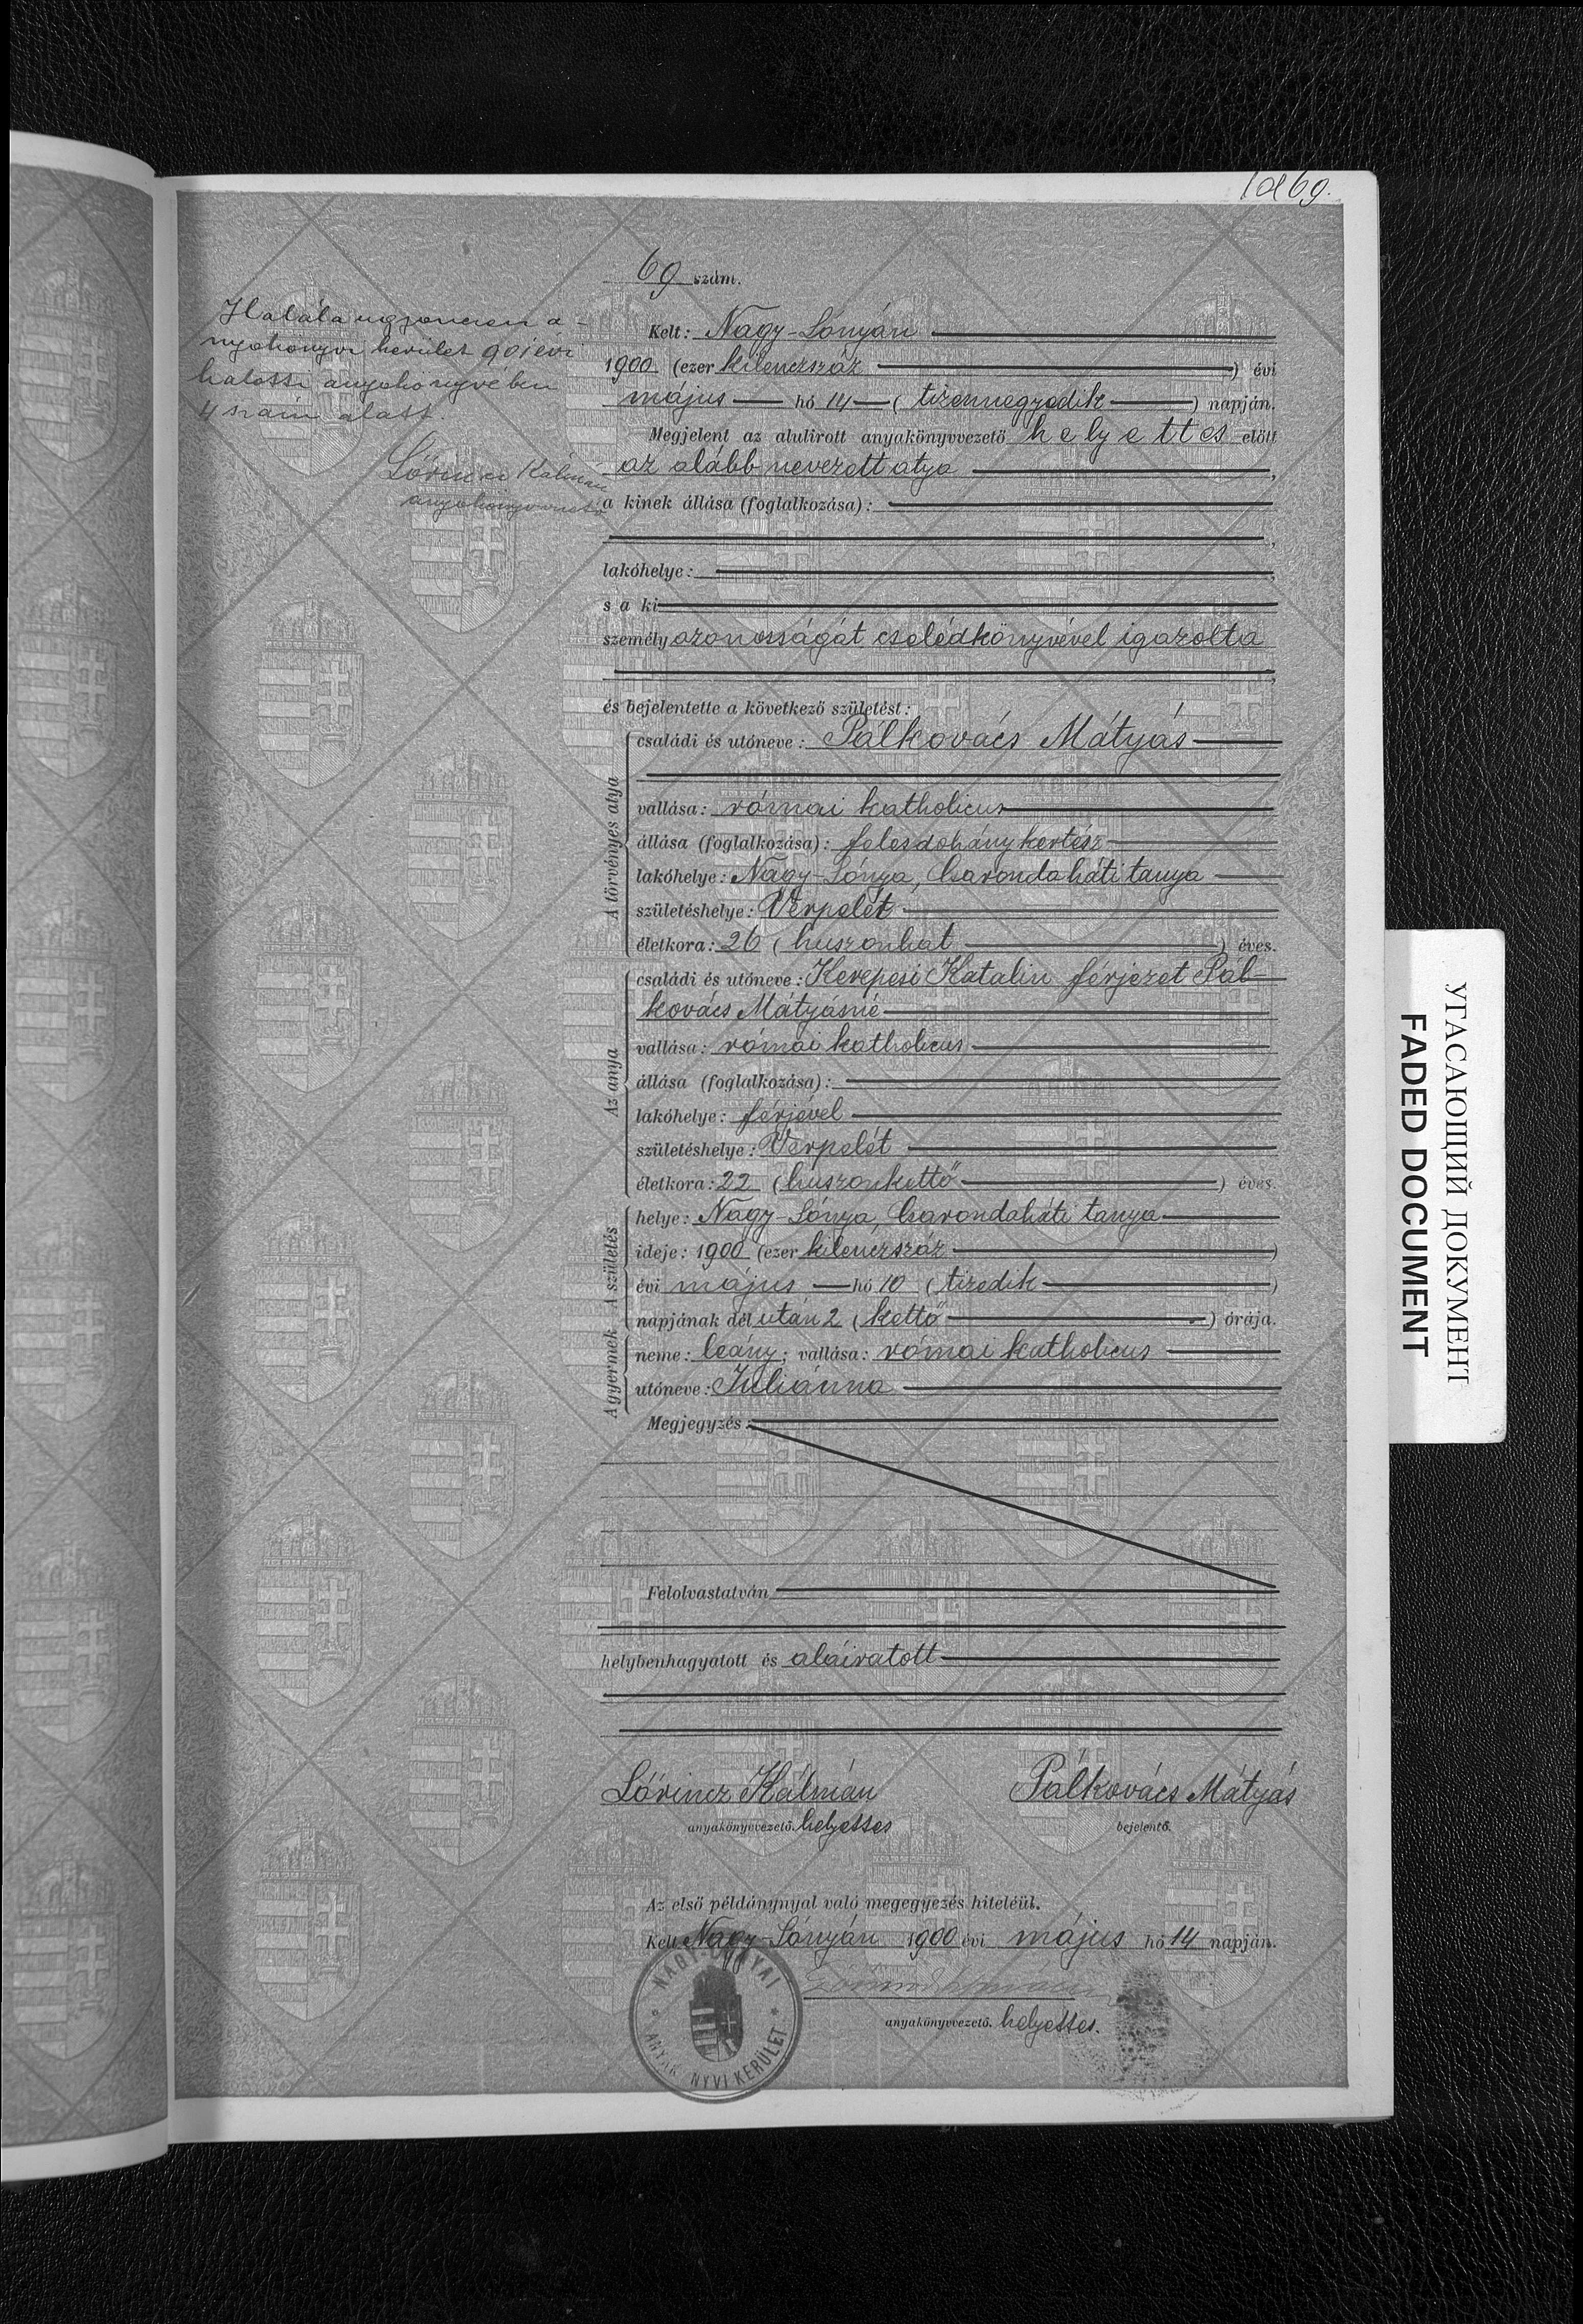 69.
69 szám.
Halála ugyanezen a-
nyakönyvi kerület 901 évi
halotti anyakönyvében
4 szám alatt.
Lőrincz Kálmán
anyakönyvvezető
Kelt: Nagy-Lónyán
1900 (ezer kilenczszáz ) évi
május hó 14 ( tizennegyedik ) napján.
Megjelent az alulirott anyakönyvvezető helyettes előtt
az alább nevezett atya ,
a kinek állása (foglalkozása):
,
lakóhelye: ,
s a ki
személyazonosságát cselédkönyvével igazolta
,
és bejelentette a következő születést:
A törvényes atya
családi és utóneve: Pálkovács Mátyás
vallása: római katholicus
állása (foglalkozása): felesdohánykertész
lakóhelye: Nagy-Lónya, Csarondaháti tanya
születéshelye: Verpelét
életkora: 26 ( huszonhat ) éves.
Az anya
családi és utóneve: Kerepesi Katalin férjezet Pál-
kovács Mátyásné
vallása: római katholicus
állása (foglalkozása):
lakóhelye: férjével
születéshelye: Verpelét
életkora: 22 (huszonkettő ) éves.
A születés
helye: Nagy-Lónya, Csarondaháti tanya
ideje: 1900 (ezer kilenczszáz )
évi május hó 10 ( tizedik )
napjának dél után 2 ( kettő ) órája.
A gyermek
neme: leány; vallása: római katholicus
utóneve: Juliánna
Megjegyzés:
Felolvastatván
helybenhagyatott és aláiratott
Lőrincz Kálmán Pálkovács Mátyás
anyakönyvvezető. helyettes bejelentő.
Az első példánynyal való megegyezés hiteléül.
Kelt Nagy-Lónyán 1900 évi május hó 14 napján.
anyakönyvvezető. helyettes.
NYVI KERÜLET
УГАСАЮЩИЙ ДОКУМЕНТ
FADED DOCUMENT